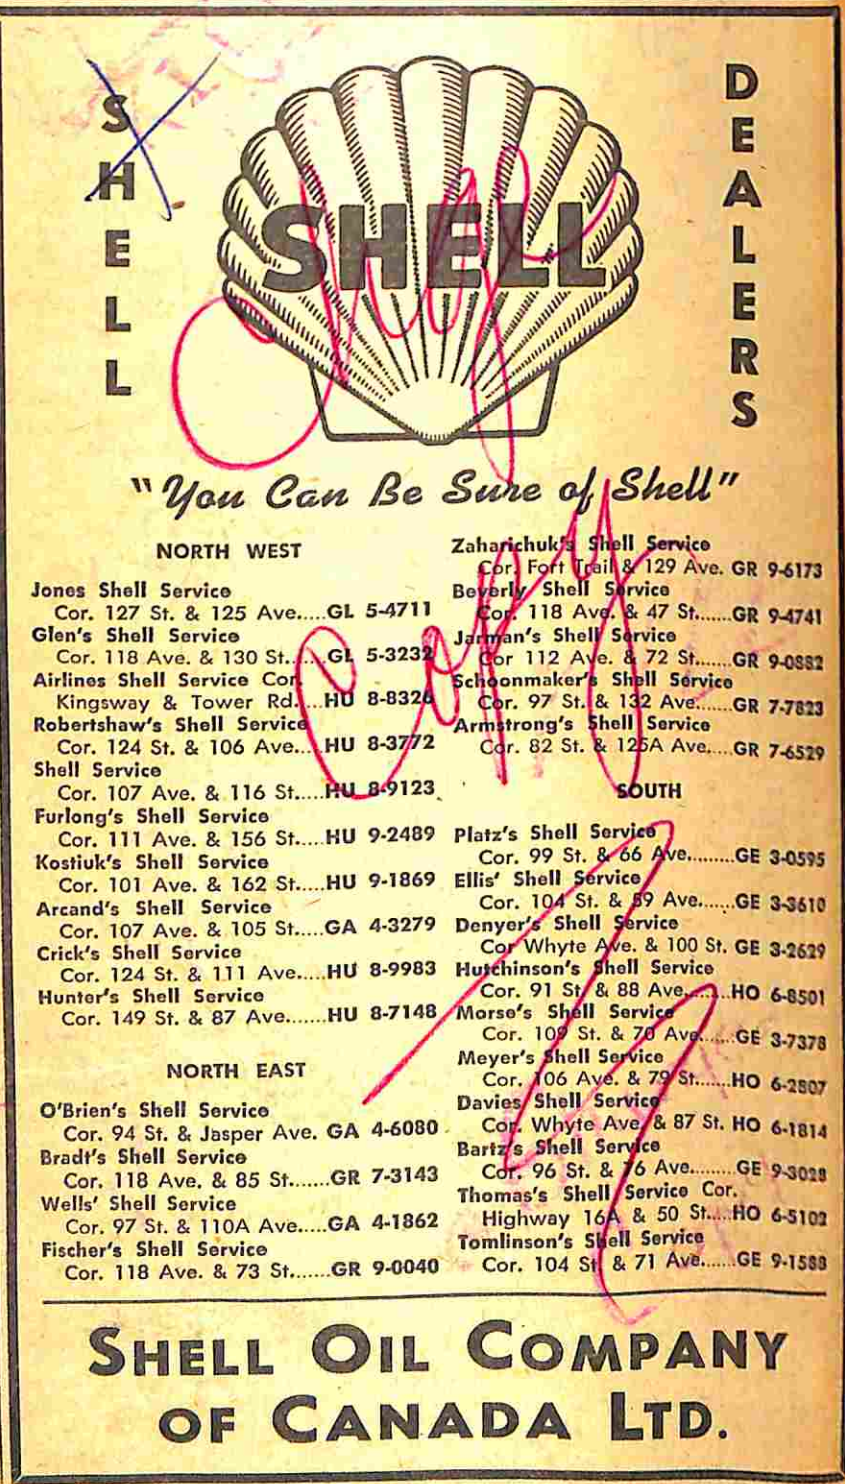 SHELL
DEALERS
SHELL
"You Can Be Sure of Shell"
NORTH WEST
Jones Shell Service
Cor. 127 St. & 125 Ave.....GL 5-4711
Glen's Shell Service
Cor. 118 Ave. & 130 St.....GL 5-3232
Airlines Shell Service Cor.
Kingsway & Tower Rd....HU 8-8326
Robertshaw's Shell Service
Cor. 124 St. & 106 Ave...HU 8-3772
Shell Service
Cor. 107 Ave. & 116 St.....HU 8-9123
Furlong's Shell Service
Cor. 111 Ave. & 156 St.....HU 9-2489
Kostiuk's Shell Service
Cor. 101 Ave. & 162 St.....HU 9-1869
Arcand's Shell Service
Cor. 107 Ave. & 105 St.....GA 4-3279
Crick's Shell Service
Cor. 124 St. & 111 Ave....HU 8-9983
Hunter's Shell Service
Cor. 149 St. & 87 Ave.......HU 8-7148
NORTH EAST
O'Brien's Shell Service
Cor. 94 St. & Jasper Ave. GA 4-6080
Bradt's Shell Service
Cor. 118 Ave. & 85 St.......GR 7-3143
Wells' Shell Service
Cor. 97 St. & 110A Ave....GA 4-1862
Fischer's Shell Service
Cor. 118 Ave. & 73 St.......GR 9-0040
Zaharichuk's Shell Service
Cor. Fort Trail & 129 Ave. GR 9-6173
Beverly Shell Service
Cor. 118 Ave. & 47 St.......GR 9-4741
Jarman's Shell Service
Cor 112 Ave. & 72 St.......GR 9-0882
Schoonmaker's Shell Service
Cor. 97 St. & 132 Ave.......GR 7-7823
Armstrong's Shell Service
Cor. 82 St. & 125A Ave....GR 7-6529
SOUTH
Platz's Shell Service
Cor. 99 St. & 66 Ave.........GE 3-0595
Ellis' Shell Service
Cor. 104 St. & 89 Ave.......GE 3-3610
Denyer's Shell Service
Cor Whyte Ave. & 100 St. GE 3-2629
Hutchinson's Shell Service
Cor. 91 St. & 88 Ave.........HO 6-8501
Morse's Shell Service
Cor. 109 St. & 70 Ave.......GE 3-7378
Meyer's Shell Service
Cor. 106 Ave. & 79 St.......HO 6-2807
Davies Shell Service
Cor. Whyte Ave. & 87 St. HO 6-1814
Bartz's Shell Service
Cor. 96 St. & 76 Ave.........GE 9-3028
Thomas's Shell Service Cor.
Highway 16A & 50 St.....HO 6-5102
Tomlinson's Shell Service
Cor. 104 St. & 71 Ave.......GE 9-1588
SHELL OIL COMPANY
OF CANADA LTD.